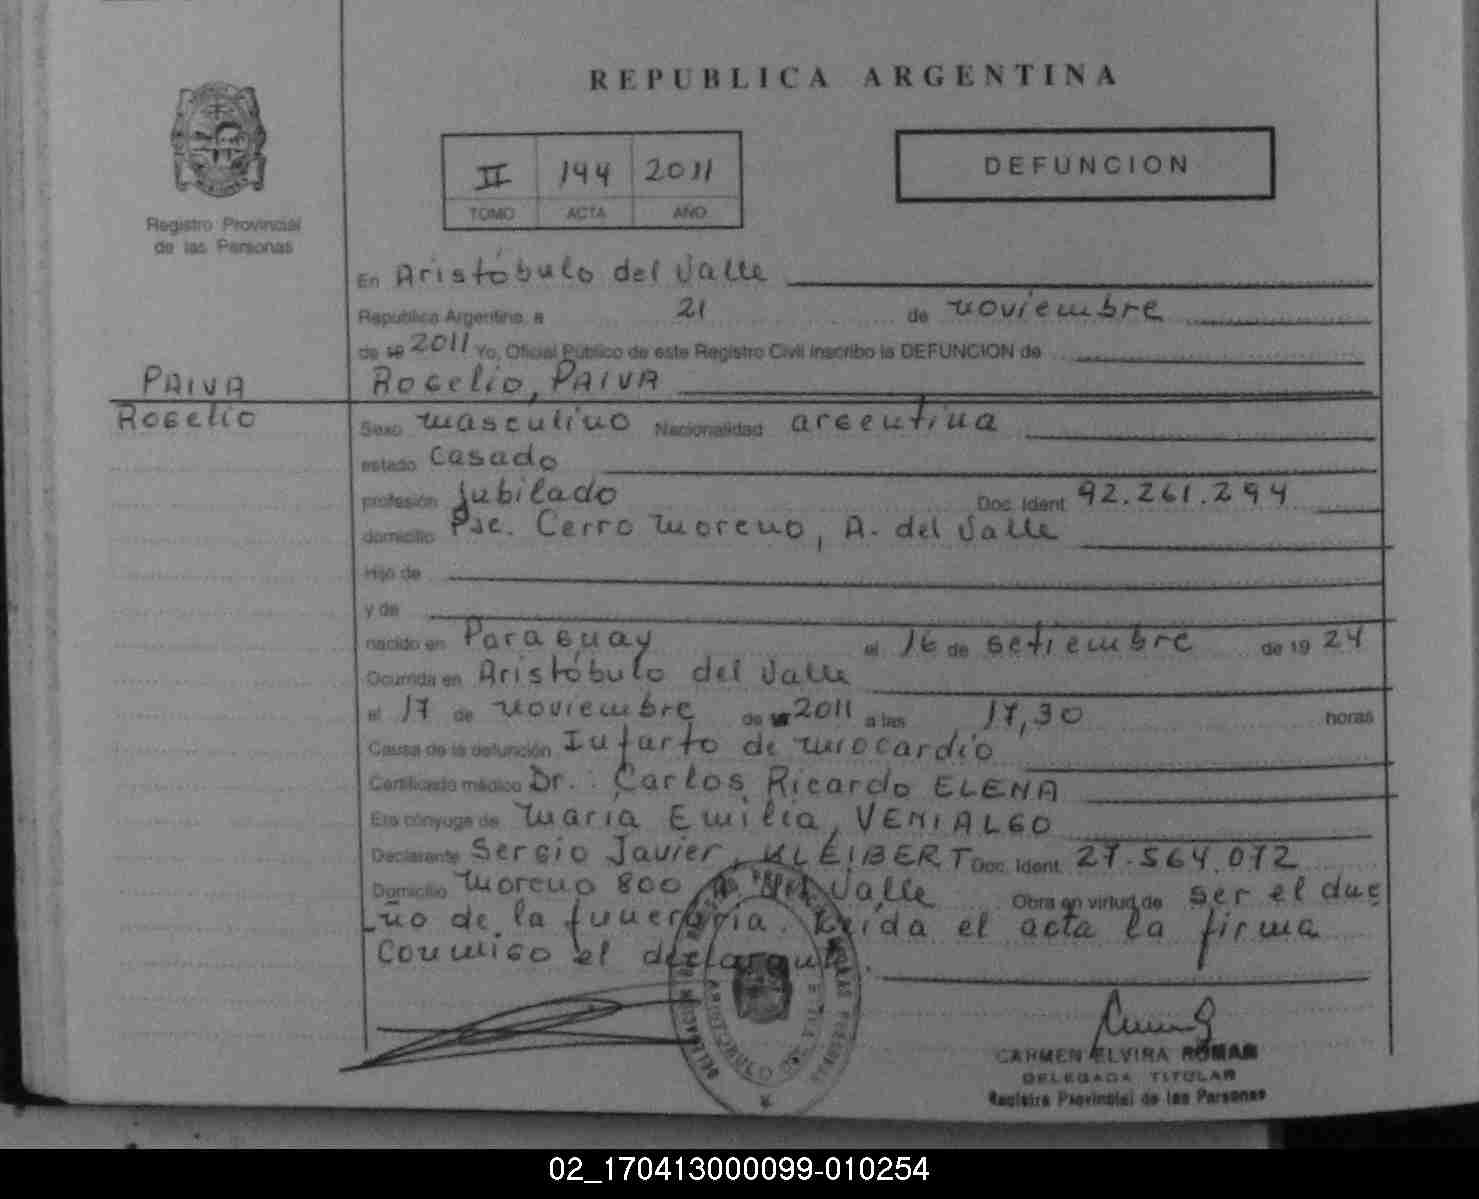 REPUBLICA ARGENTINA
II 144 2011
TOMO ACTA AÑO
DEFUNCION
Registro Provincial
de las Personas
En Aristóbulo del Valle
Republica Argentina, a 21 de noviembre
de 19 2011 Yo, Oficial Público de este Registro Civil inscribo la DEFUNCION de
PAIVA
Rogelio
Rogelio, PAIVA
Sexo masculino Nacionalidad argentina
estado casado
profesión jubilado Doc. Ident. 92.261.294
domicilio Pje. Cerro Moreno, A. del Valle
Hijo de
y de
nacido en Paraguay el 16 de setiembre de 19 24
Ocurrida en Aristóbulo del Valle
el 17 de noviembre de 2011 a las 17,30 horas
Causa de la defunción Infarto de miocardio
Certificado médico Dr. Carlos Ricardo ELENA
Era cónyuge de María Emilia, VENIALGO
Declarante Sergio Javier, KLEIBERT Doc. Ident. 27.564.072
Domicilio Moreno 800 A. del Valle Obra en virtud de ser el due
ño de la funeraria. Leída el acta la firma
conmigo el declarante.
CARMEN ELVIRA ROMAN
DELEGADA TITULAR
Registro Provincial de las Personas
02_170413000099-010254